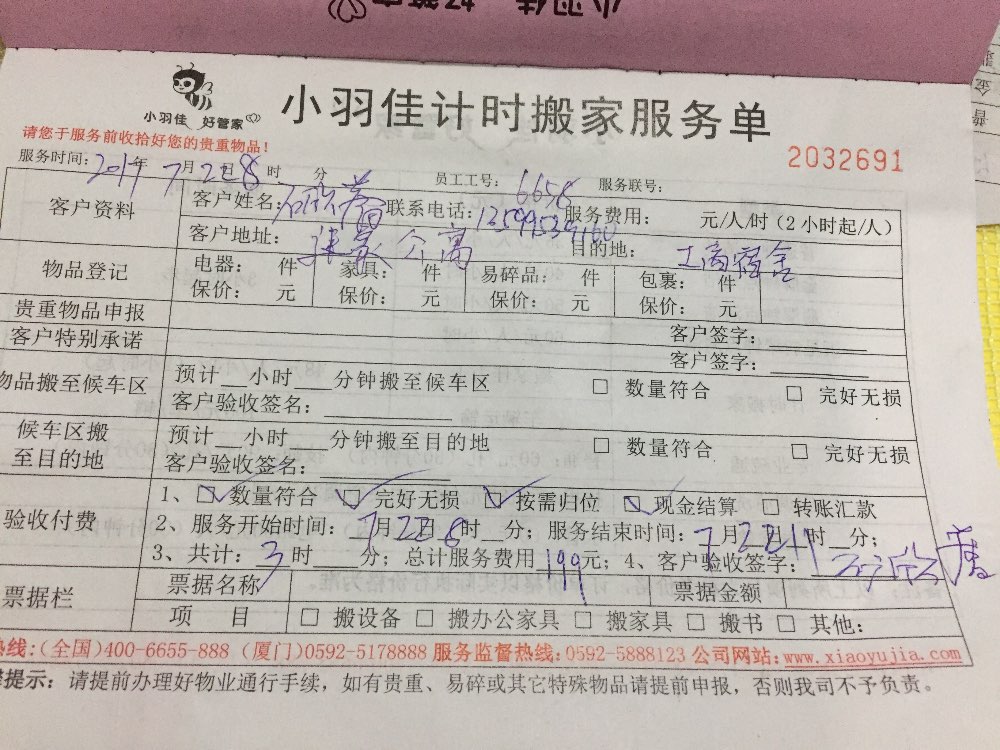 小羽佳 好管家
小羽佳计时搬家服务单
请您于服务前收拾好您的贵重物品！
2032691
服务时间：2019年 7月22日8时 分 员工工号：6656 服务联号：
客户资料 客户姓名： 联系电话：13599539160 服务费用： 元/人/时（2小时起/人）
客户地址： 公寓 目的地：工商宿舍
物品登记 电器： 件 家具： 件 易碎品： 件 包裹： 件
保价： 元 保价： 元 保价： 元 保价： 元
贵重物品申报 客户签字：
客户特别承诺 客户签字：
物品搬至候车区 预计__小时__分钟搬至候车区 □ 数量符合 □ 完好无损
客户验收签名：
候车区搬至目的地 预计__小时__分钟搬至目的地 □ 数量符合 □ 完好无损
客户验收签名：
验收付费 1、☑数量符合 ☑完好无损 ☑按需归位 ☑现金结算 □ 转账汇款
2、服务开始时间：7月22日8时__分；服务结束时间：7月22日11时__分；
3、共计：3时__分；总计服务费用199元；4、客户验收签字：
票据栏 票据名称 票据金额
项 目 □ 搬设备 □ 搬办公家具 □ 搬家具 □ 搬书 □ 其他：
热线：（全国）400-6655-888（厦门）0592-5178888 服务监督热线：0592-5888123 公司网站：www.xiaoyujia.com
提示：请提前办理好物业通行手续，如有贵重、易碎或其它特殊物品请提前申报，否则我司不予负责。